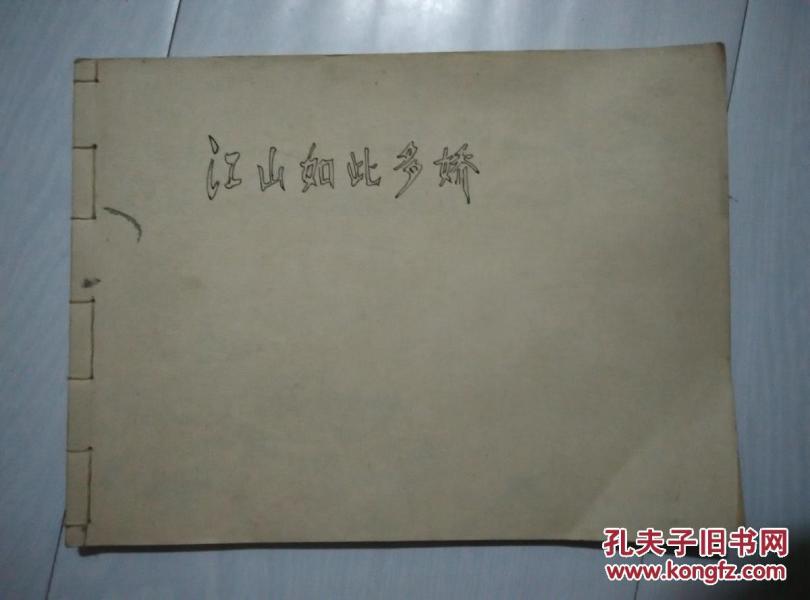 江山如此多娇
孔夫子旧书网
www.kongfz.com